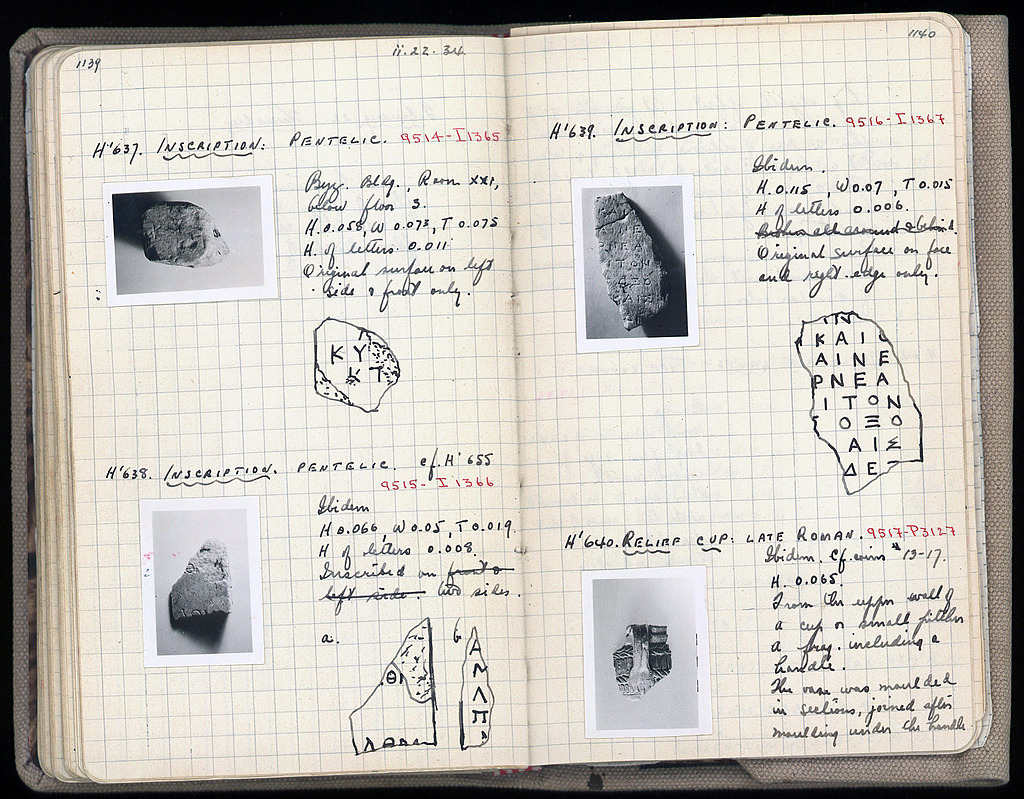 1139
ii.22.34
H'637. INSCRIPTION: PENTELIC. 9514-I1365
Byz. Bldg., Room XXI,
below floor 3.
H.0.058, W 0.073, T 0.075
H. of letters 0.011
Original surface on left
side & front only.
K Y
K T
H'638. INSCRIPTION. PENTELIC. cf. H'655
9515-I 1366
Ibidem
H 0.066, W 0.05, T 0.019.
H of letters 0.008.
Inscribed on front &
left side. two sides.
a.
b
Θ
Α
Λ
Π
1140
H'639. INSCRIPTION: PENTELIC. 9516-I1367
Ibidem.
H. 0.115, W 0.07, T 0.015
H of letters 0.006.
Broken all around & behind.
Original surface on face
and right edge only.
Κ Α Ι
Α Ι Ν Ε
Ρ Ν Ε Α
Ι Τ Ο Ν
Ο Ξ Ο
Α Ι Σ
Δ Ε
H'640. RELIEF CUP: LATE ROMAN. 9517-P3127
Ibidem. Cf. coins # 13-17.
H. 0.065.
From the upper wall of
a cup or small pitcher
a frag. including a
handle.
The vase was moulded
in sections, joined after
moulding under the handle